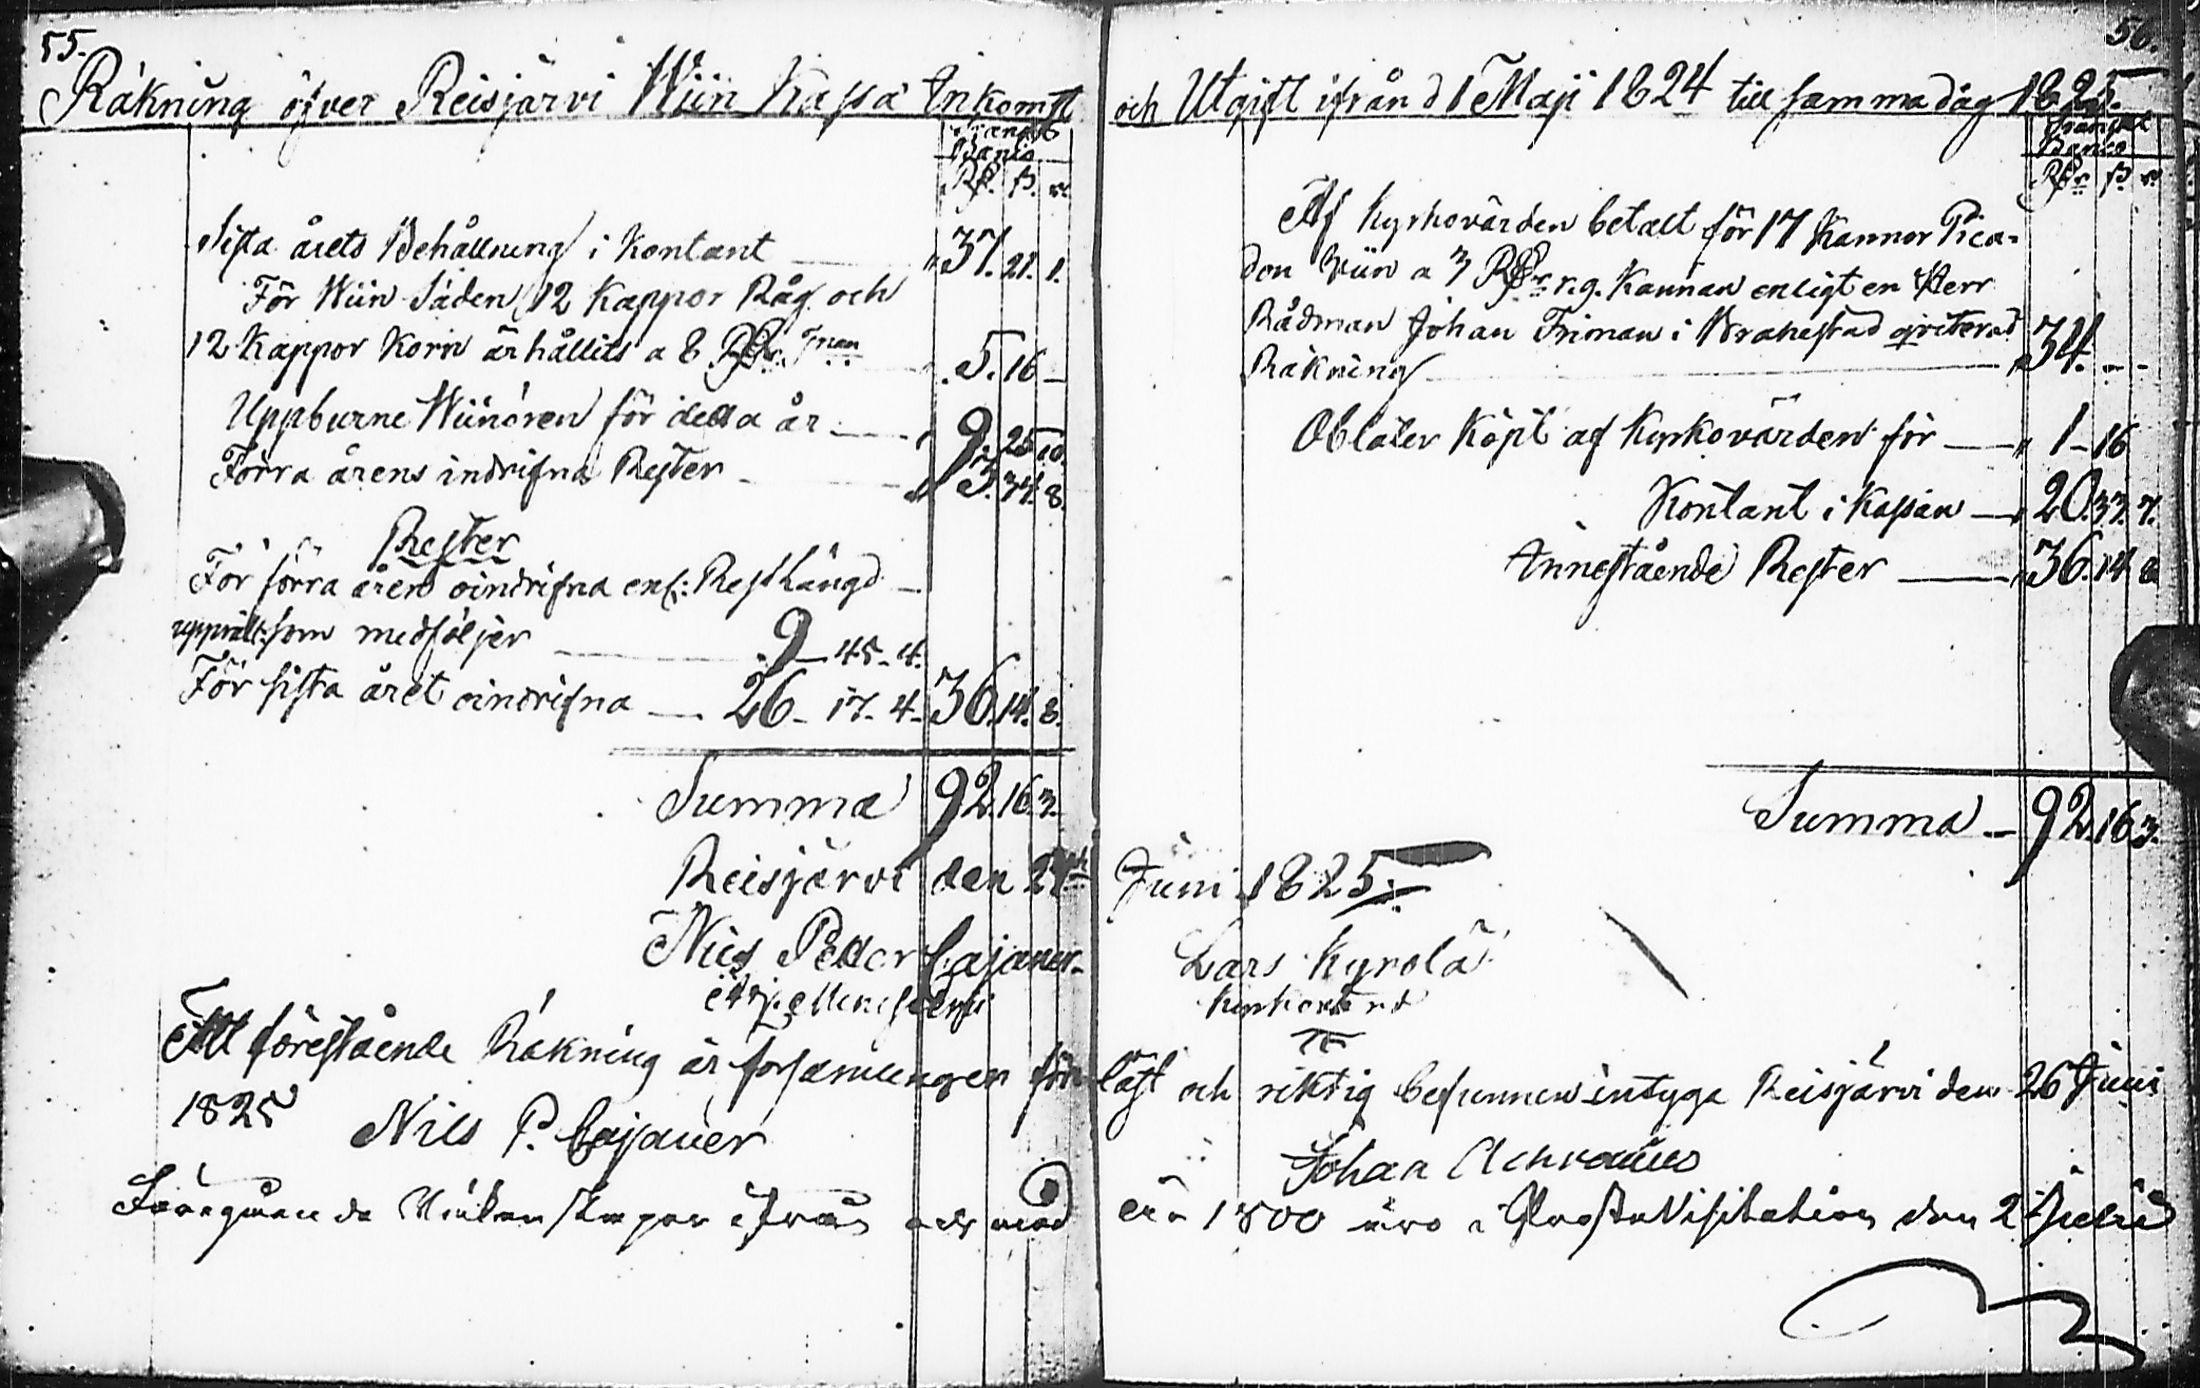 55.
Räkning öfver Reisjärvi Wiin Kassa Inkomst
Banco
Rß. ß. r.
Sista årets Behållning i Kontant 37. 21. 1.
För Wiin Säden 12 Kappor Råg och
12 Kappor Korn ärhållits a 8 Rßr. Tnan 5. 16 —
Uppburne Wiinören för detta år 9. 25 10.
Förra årens indrifna Rester 3. 34. 8.
Rester
För förra åren oindrifna enl: Rest Längd
upprätt: som medföljer 9 — 45 - 4.
För sista året oindrifna — 26 - 17 - 4 - 36. 14. 8.
Summa 92. 16. 3.
Reisjärvi den 24de
Nils Petter Cajaner
Att förestående Räkning är församlingen före
1825 Nils P. Cajaner
Föregående Räkenskaper ifrån och med
56.
och Utgift ifrån d 1 Maji 1824 till samma dag 1825.
Banco
Rßr ß r
Af Kyrkovärden betalt för 17 Kannor Pica-
don Wiin a 3 Rßr r.g. Kannan enligt en Herr
Rådman Johan Friman i Brahestad qviterad
Räkning 34. - -
Oblater köpt af Kyrkovärden för — 1 - 16
Kontant i Kassan — 20. 33. 7.
Innestående Rester — 36. 14 8
Summa — 92. 16 3.
Juni 1825.
Lars Kyrölä
Kyrkovärd
läst och riktig befunnen intyga Reisjärvi den 26 Juni
Johan
år 1800 äro i Prosta Visitation den 2 Julii